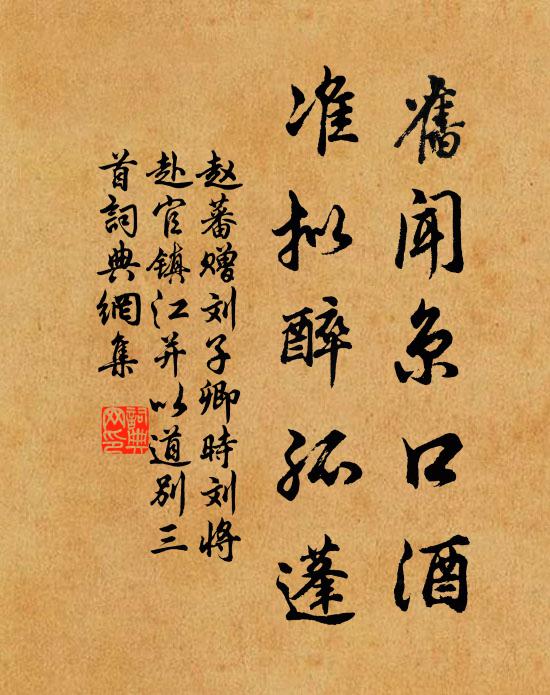 舊闻京口酒
准拟醉孤蓬
赵蕃赠刘子卿時刘将
赴官镇江并以道别三
首詞典網集
詞典
网印